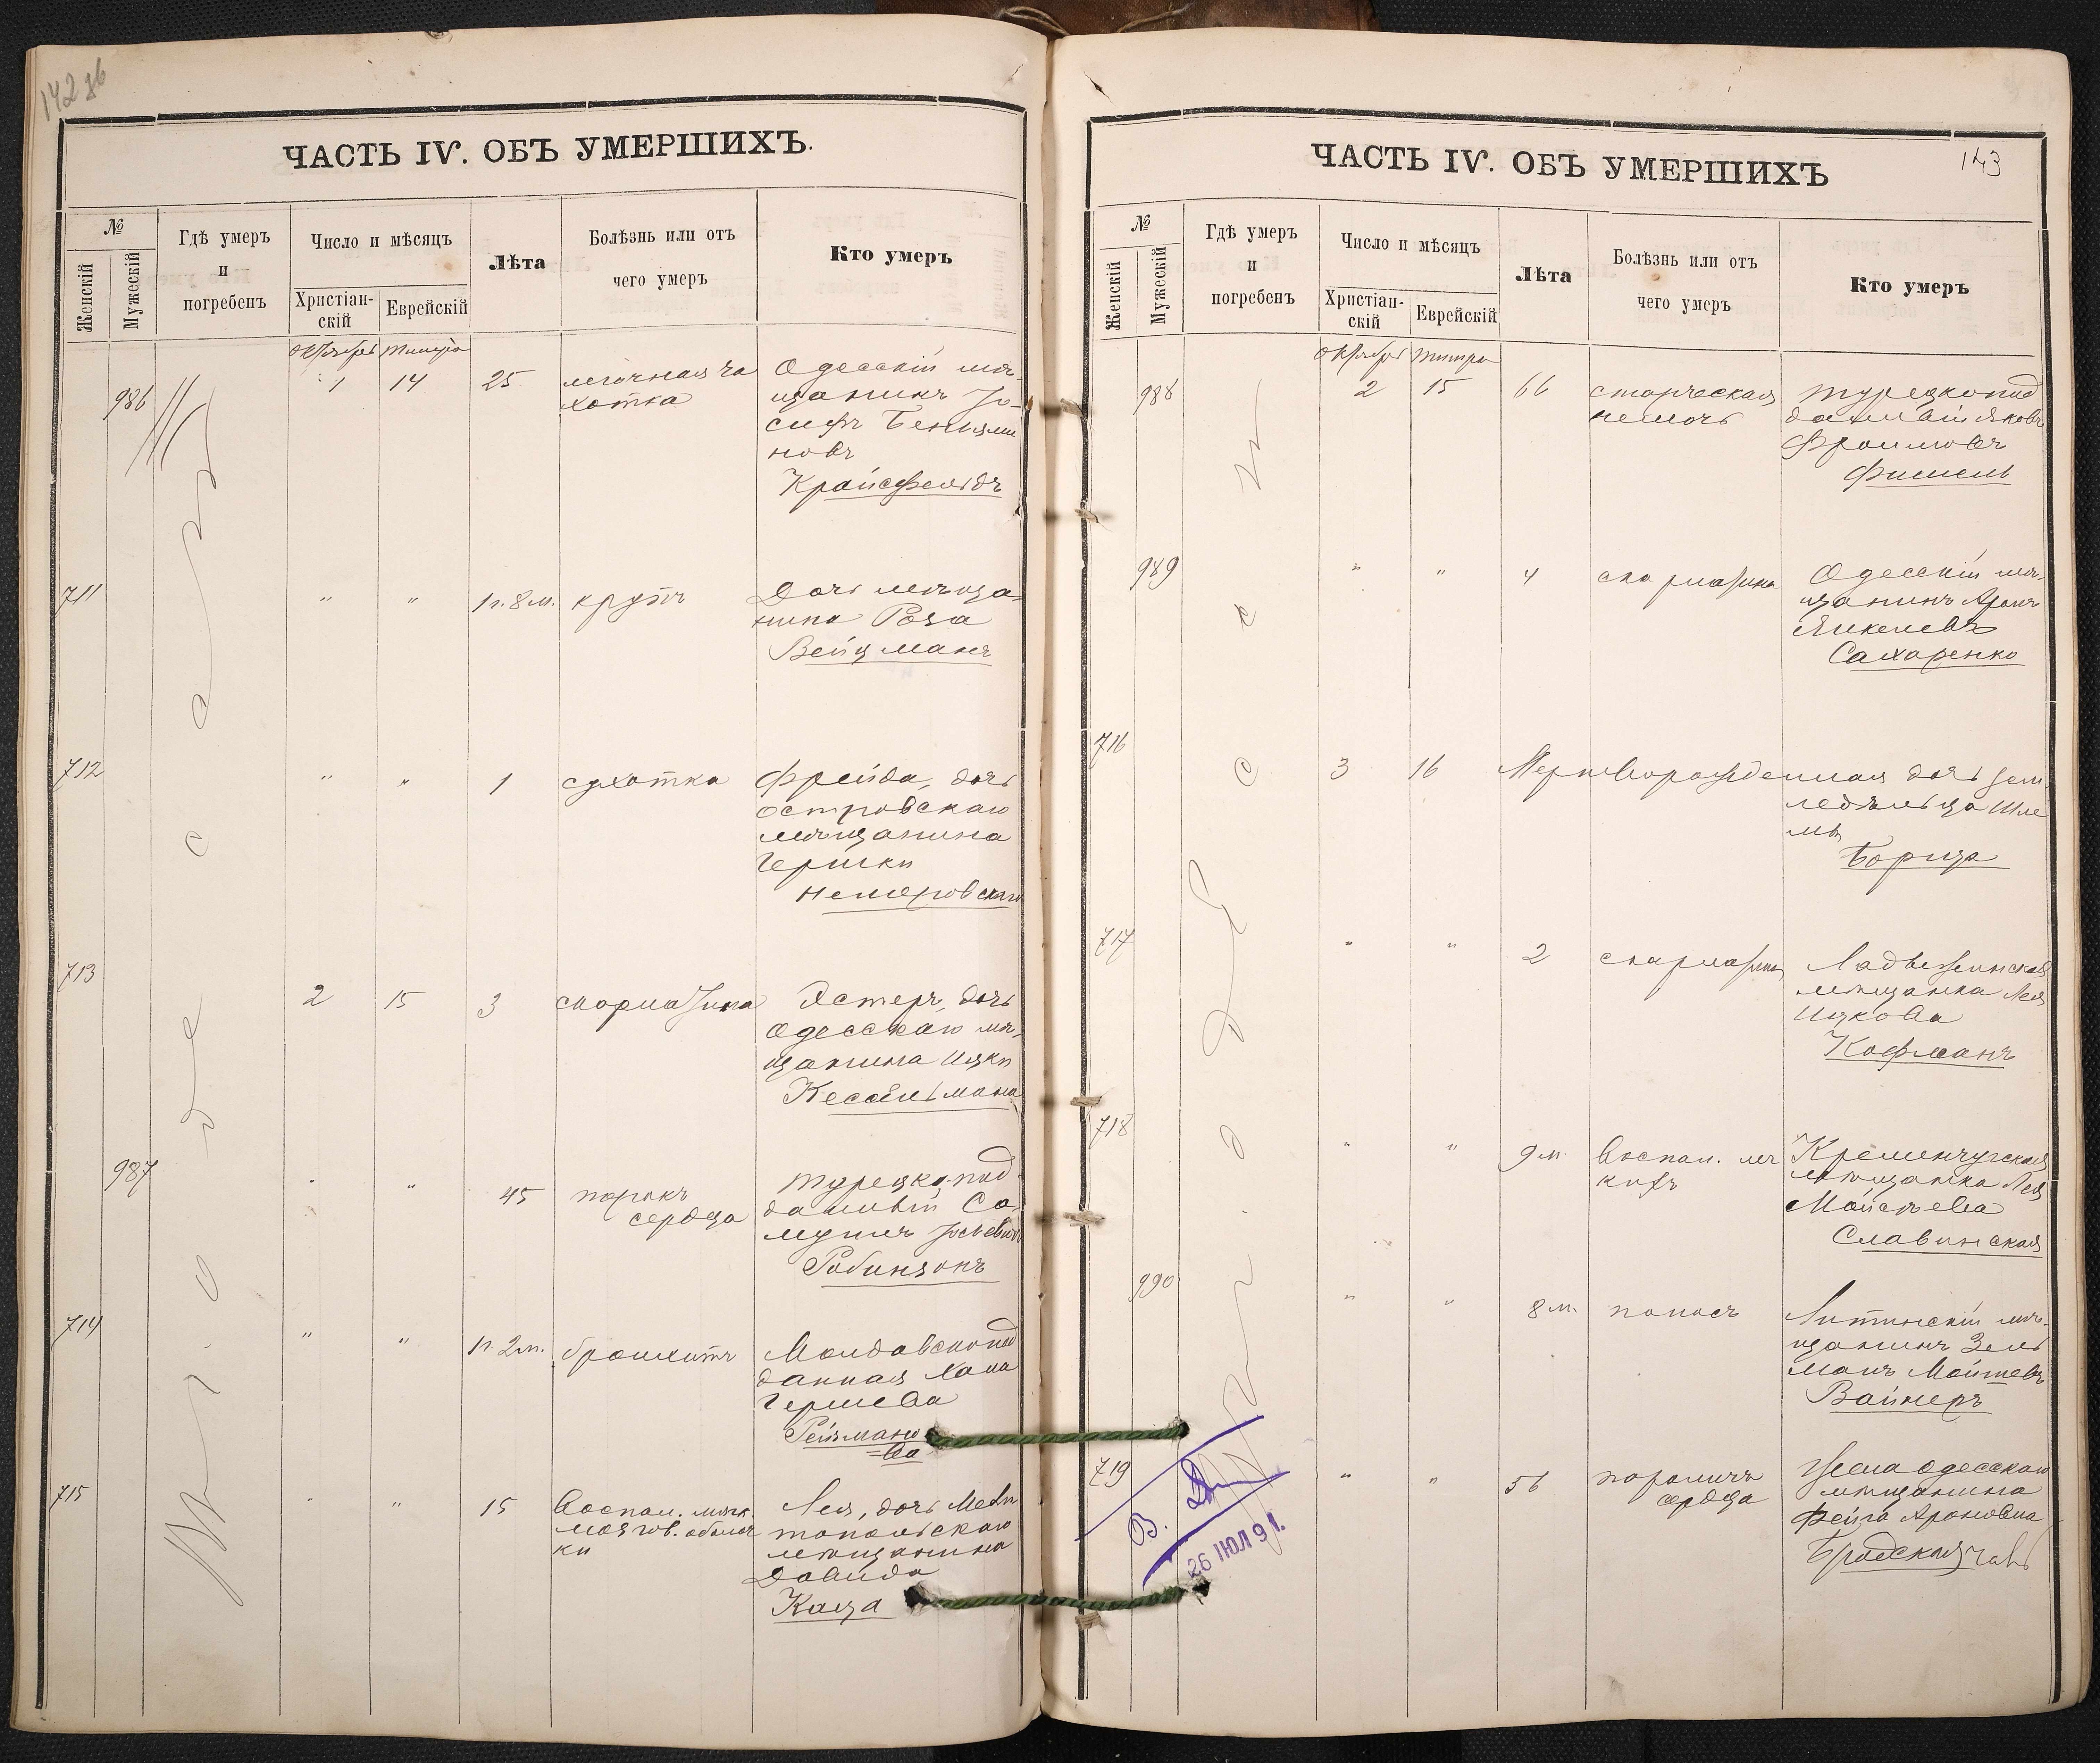 142 об
ЧАСТЬ IV. ОБЪ УМЕРШИХЪ.
№
Женскій
Мужескій
Гдѣ умеръ
и
погребенъ
Число и мѣсяцъ
Христіан-
скій
Еврейскій
Лѣта
Болѣзнь или отъ
чего умеръ
Кто умеръ
Октябрь Тишри
986 1 14 25 легочная ча
хотка
Одесскій мѣ-
щанинъ Іо-
сифъ Беніями
новъ
Крайсфельдъ
711 " " 1 г. 8 м. крупъ
Дочь мѣща-
нина Роза
Вейцманъ
712 " " 1 сухотка
Фрейда, дочь
островскаго
мѣщанина
Гершки
Немеровскаго
713 2 15 3 скарлатина
Эстеръ, дочь
Одесскаго мѣ-
щанина Ицки
Кессельмана
987 " " 45 порокъ
сердца
Турецко-под-
данный Са-
муилъ
Робинзонъ
714 " " 1 г. 2 м. бронхитъ
Молдавскопод
данная Хана
Гершева
Рейзмано
=ва
715 " " 15 Воспал. мягк.
мозгов. оболоч
ки
Лея, дочь Мели
топольскаго
мѣщанина
Давида
Каца
Въ г. Одессѣ
ЧАСТЬ IV. ОБЪ УМЕРШИХЪ
143
№
Женскій
Мужескій
Гдѣ умеръ
и
погребенъ
Число и мѣсяцъ
Христіан-
скій
Еврейскій
Лѣта
Болѣзнь или отъ
чего умеръ
Кто умеръ
Октябрь Тишри
988 2 15 66 старческая
немочь
Турецкопод
данный Яковъ
Фроимовъ
Фишель
989 " " 4 скарлатина
Одесскій мѣ-
щанинъ Аронъ
Янкелевъ
Сахаренко
716 3 16 Мертворожденная дочь зем-
ледѣльца Шле
мы
Борща
717 " " 2 скарлатина
Ладыжинская
мѣщанка Лея
Ицкова
Кофманъ
718 " " 9 м. Воспал. лег
кихъ
Кременчугская
мѣщанка Лея
Мойсѣева
Славинская
990 " " 8 м. поносъ
Литинскій мѣ-
щанинъ Зель
манъ Мошкевъ
Вайнеръ
719 " " 56 параличъ
сердца
Жена одесскаго
мѣщанина
Фейга Ароновна
Бродская
В.
26 ІЮЛ 91.